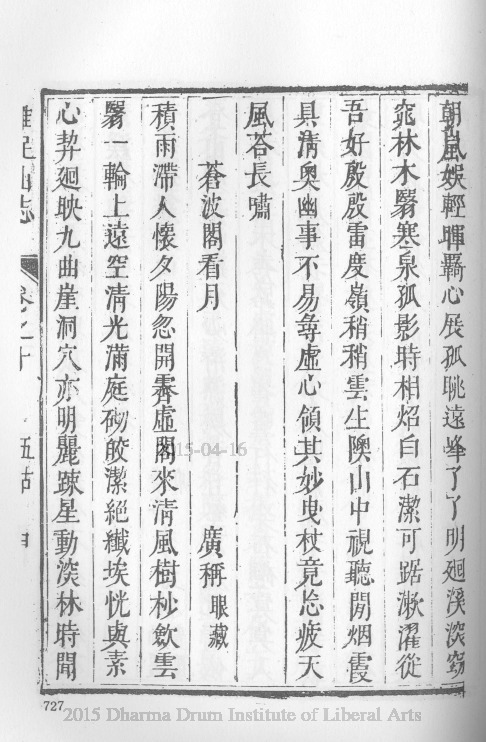 朝嵐娛輕暉羇心展孤眺遠峰了了明廻溪深窈
窕林木翳寒泉孤影時相炤白石潔可踞漱濯從
吾好殷殷雷度嶺稍稍雲生隩山中視聽閒烟霞
具清奧幽事不易尋虛心領其妙曳杖竟忘疲天
風荅長嘯
蒼波閣看月 廣稱 眼藏
積雨滯人懷夕陽忽開霽虛閣來清風樹杪歛雲
翳一輪上遠空清光滿庭砌皎潔絕纖埃恍與素
心契廻映九曲崖洞穴亦明麗踈星動深林時聞
雞足山志 卷之十
727
2015-04-16
2015 Dharma Drum Institute of Liberal Arts